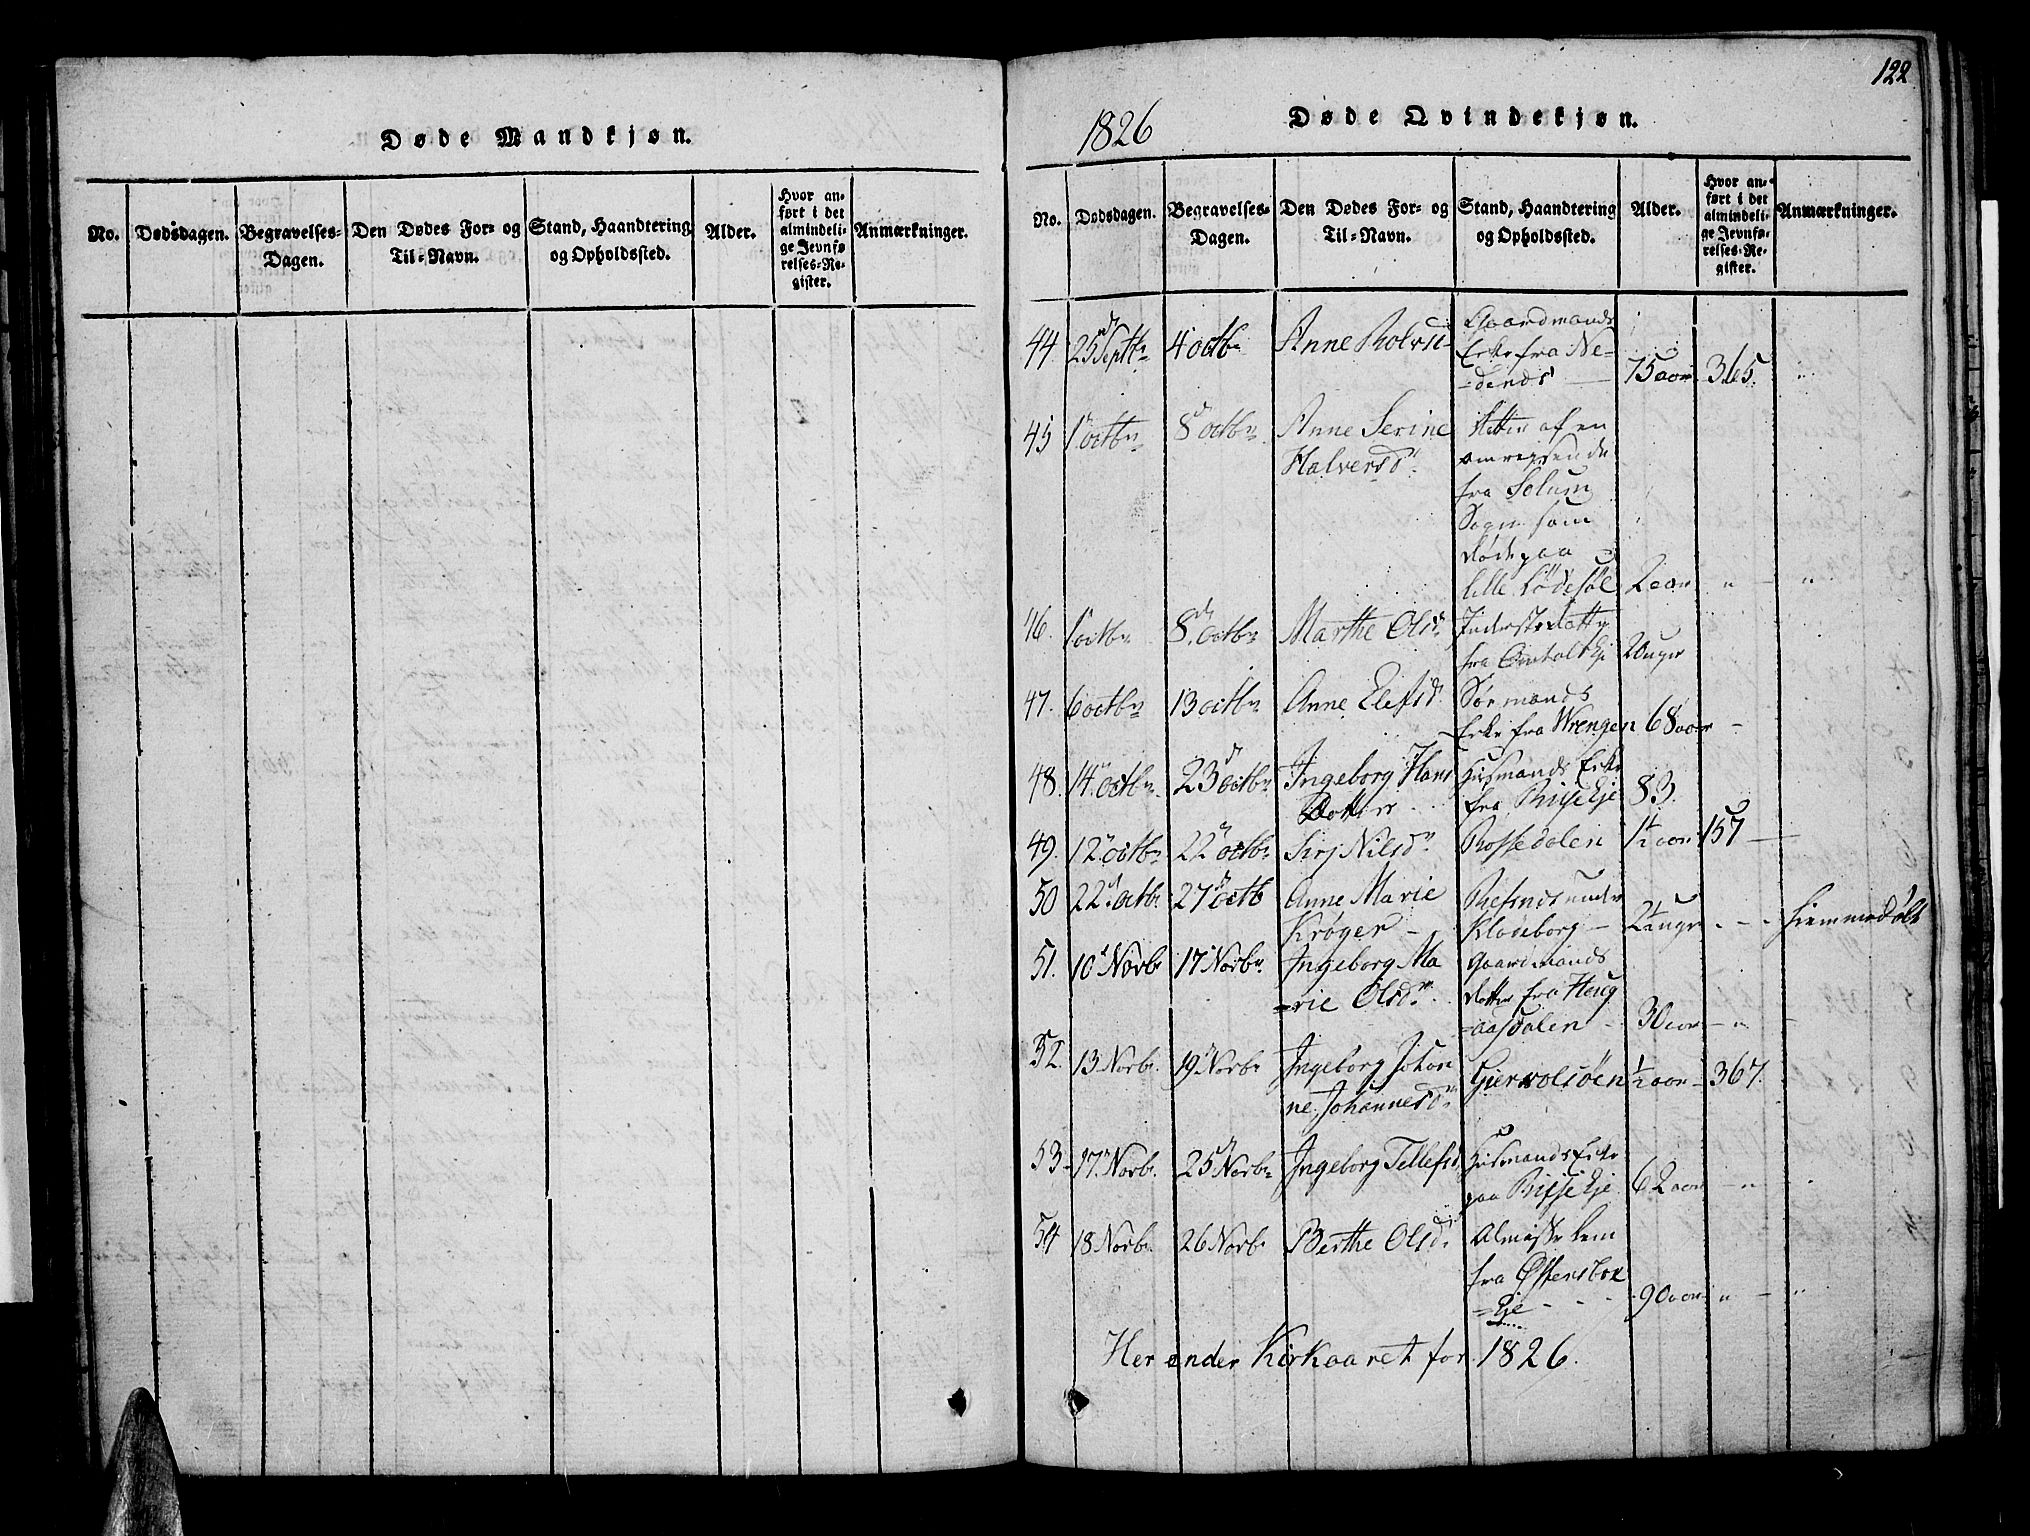 122
Døde Mandkjøn.
No.
Dødsdagen.
Begravelses-
Dagen.
Den Dødes For- og
Til-Navn.
Stand, Haandtering
og Opholdssted.
Alder.
Hvor an-
ført i det
almindeli-
ge Jevnfø-
relses-Re-
gister.
Anmærkninger.
1826
Døde Qvindekjøn.
No.
Dødsdagen.
Begravelses-
Dagen.
Den Dødes For- og
Til-Navn.
Stand, Haandtering
og Opholdssted.
Alder.
Hvor an-
ført i det
almindeli-
ge Jevnfø-
relses-Re-
gister.
Anmærkninger.
44 25 Septbr 4 octbr Anne Rolvsd
Gaardmands
Enke fra Ne-
=denes 75 aar 365.
45 1 octbr 8 octbr Anne Serine
Halversdr.
datter af en
omreisende
fra Solum
Sogn som
døde paa
lille Lødesøl 2 aar
46. 1 octbr 8 octbr Marthe Olsdr
Inderstedatter
fra Eje 20 uger
47. 6 octbr 13 octbr Anne Elefsd
mands
Enke fra Wrengen 68 aar
48. 14 octbr. 23 octbr Ingeborg Hans
Dotter
Husmands Enke
fra Risse Eje 83.
49. 12 octbr 22 octbr Siri Nilsdr Rossedalen 1½ aar 157
50 22 octbr 27 octb Anne Marie
Krøger
Resnes under
Klodeborg 2½ uger hiemmedøbt
51. 10 Novbr 17 Novbr. Ingeborg Ma
=rie Olsdr.
Gaardmands
datter fra Houg
=aasdalen 30 aar
52. 13 Novbr. 19 Novbr Ingeborg Johan
ne Johannesdr
Giervolsøen ½ aar 367.
53 17. Novbr. 25 Novbr Ingeborg Tellefsd
Husmands Enke
paa Risse Eje 62 aar
54 18 Novbr. 26 Novbr Berthe Olsdr
Almisse lem
fra Østensbox
=Eje 90 aar
Her ender Kirkaaret for 1826.